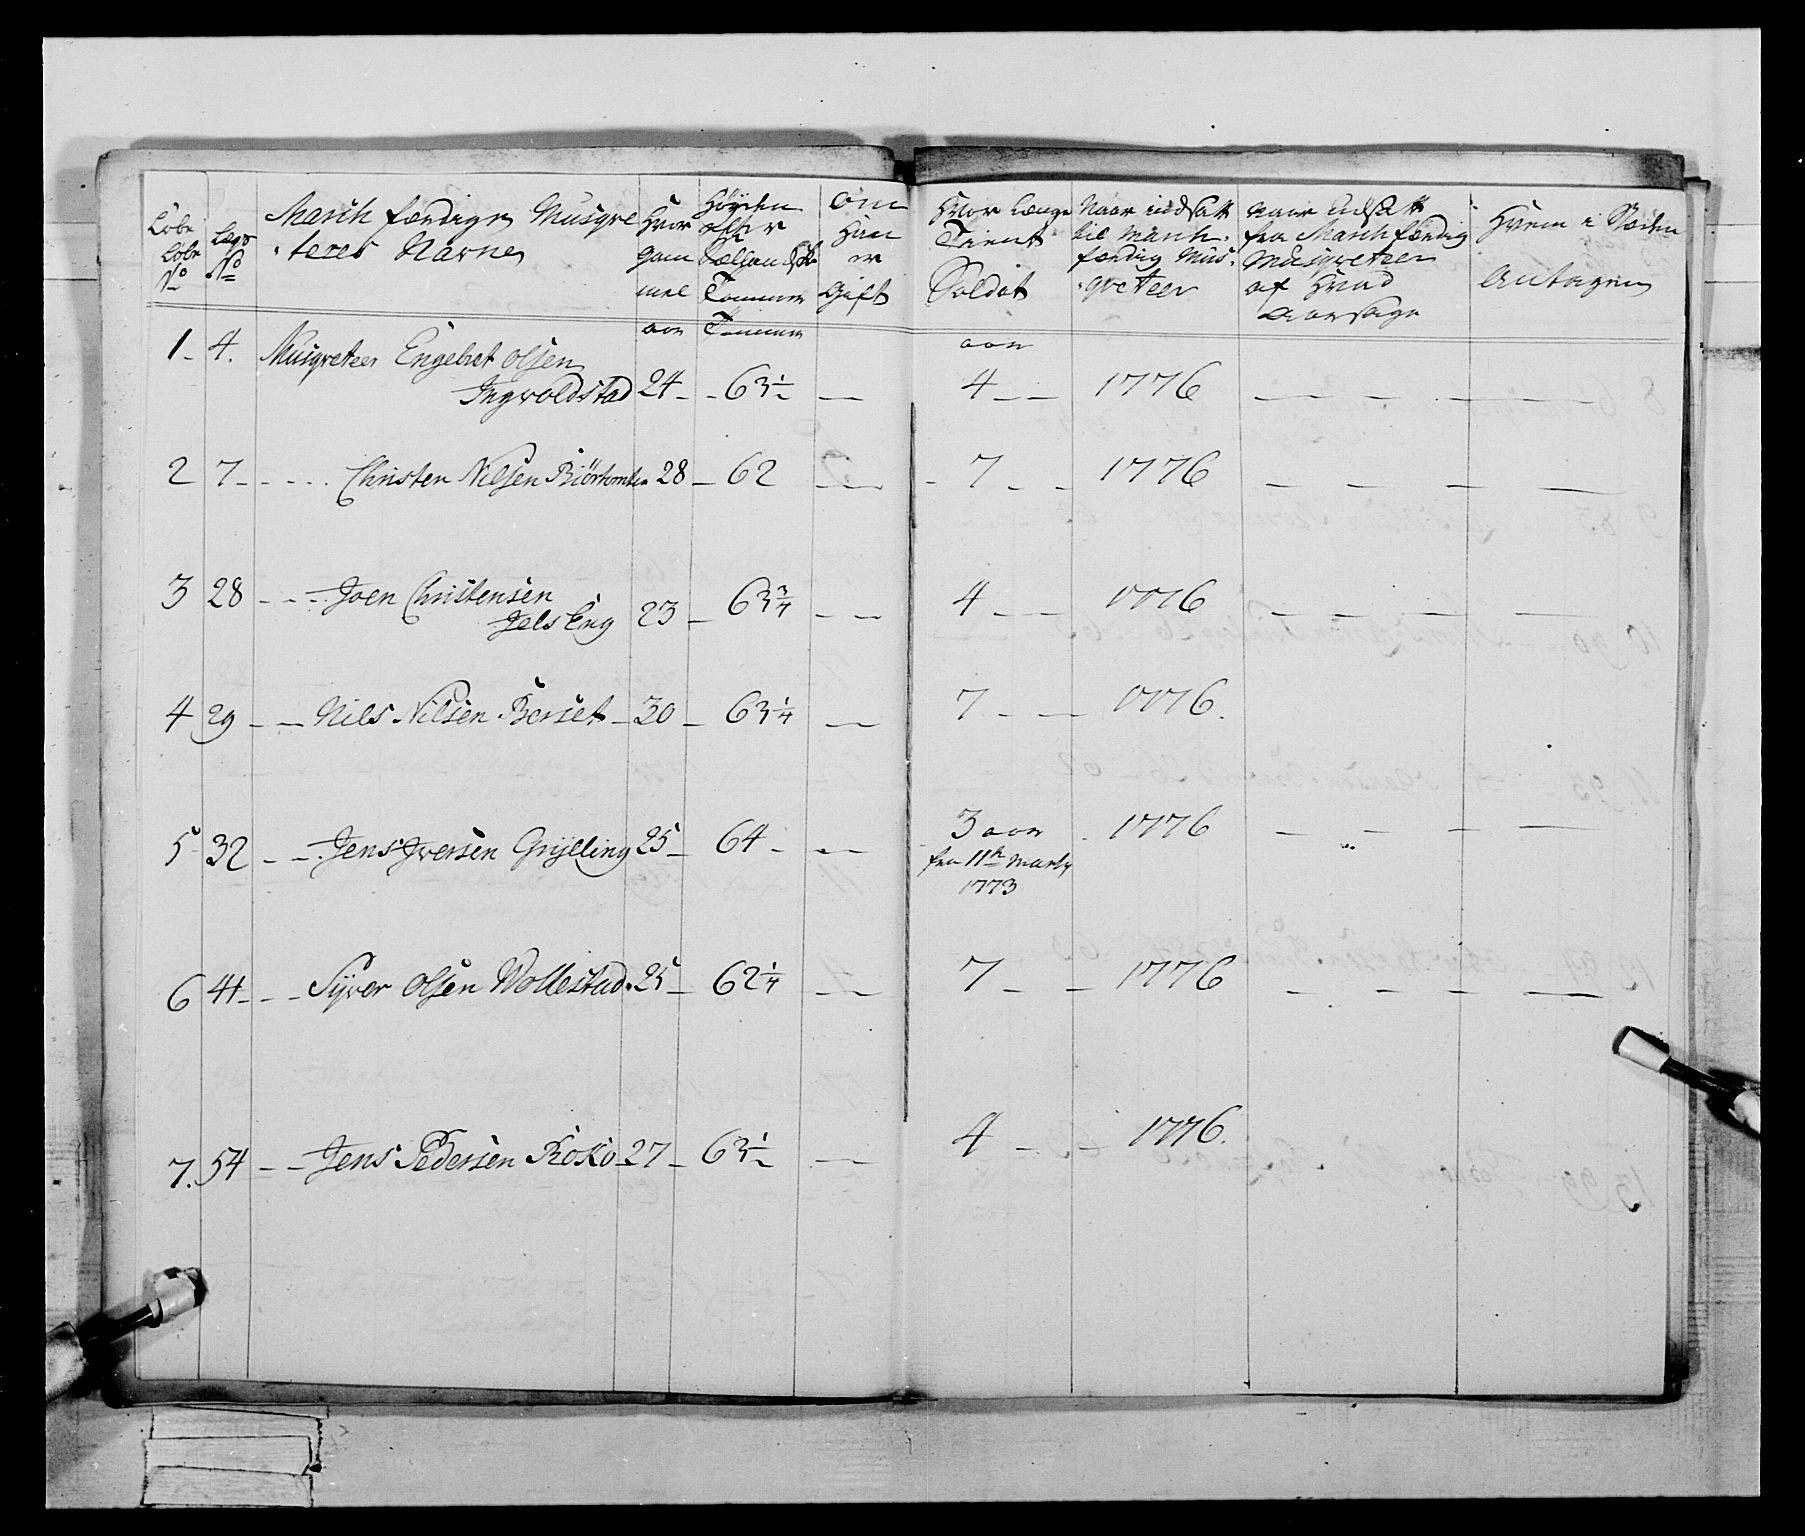 Löbe Löbe No
Lægs No
March færdige Musqve
teres Navne
Hvor gam mel
Höyden efter Sællandske Tommer
om Han er Gift
Hvor længe Tient Soldat
Naar indsatt til March færdig Mus qveteer
naar udsatt fra March færdig Musqveteer af Hvad Aarsage
Hvem i Steden Antagen
aar Tommer aar
1 4. Musqveteer Engebret Olsen
Ingvoldstad 24 63½ 4 1776
2 7 Christen Nilsen 28 62 7 1776
3 28 Joen Christensen
Jels Eng 23 63¾ 4 1776
4 29 Nils Nilsen Berset 30 63¼ 7 1776.
5 32 Jens Iversen Grylling 25 64 3 aar 1776
fra 11te Marty
1773
6 41 Syver Olsen Wollestad 25 62¼ 7 1776
7. 54 Jens Pedersen Koko 27 63½ 4 1776.